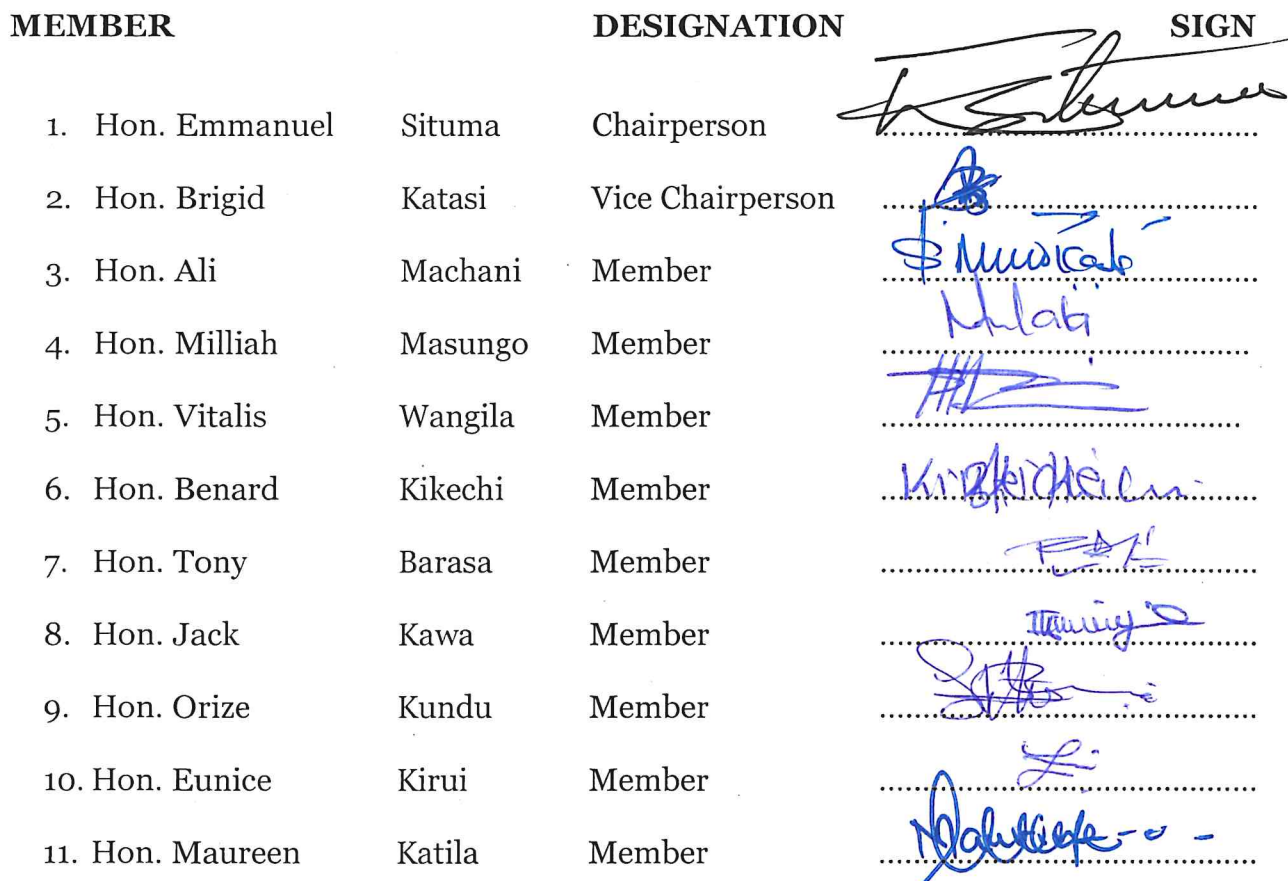 MEMBER DESIGNATION SIGN
1. Hon. Emmanuel Situma Chairperson
2. Hon. Brigid Katasi Vice Chairperson
3. Hon. Ali Machani Member
4. Hon. Milliah Masungo Member
5. Hon. Vitalis Wangila Member
6. Hon. Benard Kikechi Member
7. Hon. Tony Barasa Member
8. Hon. Jack Kawa Member
9. Hon. Orize Kundu Member
10. Hon. Eunice Kirui Member
11. Hon. Maureen Katila Member